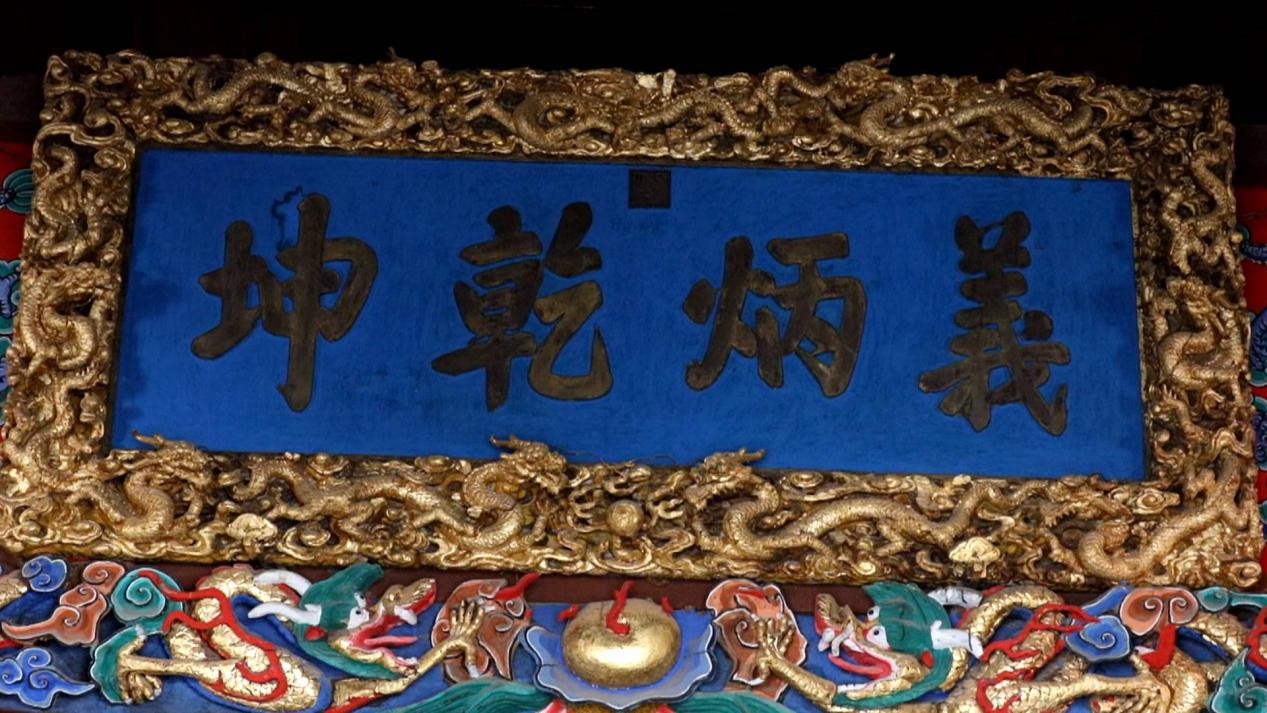 義炳乾坤